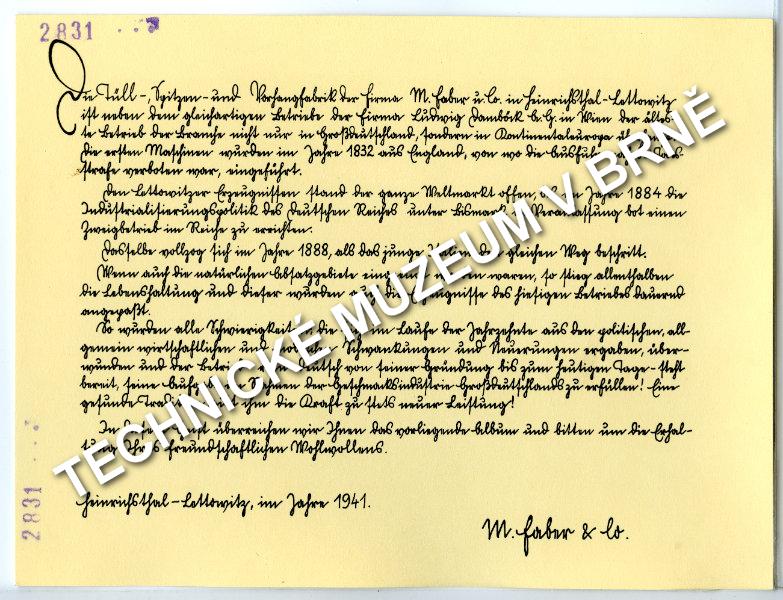 2831
Die Tüll-, Spitzen- und Vorhangfabrik der Firma M. Faber u. Co. in Heinrichsthal-Lettowitz
ist neben dem gleichartigen Betriebe der Firma Ludwig Damböck A.G. in Wien der älte-
ste Betrieb der Branche nicht nur in Großdeutschland, sondern in Kontinentaleuropa
die ersten Maschinen wurden im Jahre 1832 aus England, von wo die Ausfuhr
strafe verboten war, eingeführt.
Den Lettowitzer Erzeugnissen stand der ganze Weltmarkt offen, Jahre 1884 die
Industrialisierungspolitik des Deutschen Reiches unter Bismark Veranlassung bot einen
Zweigbetrieb im Reiche zu errichten.
Dasselbe vollzog sich im Jahre 1888, als das junge gleichen Weg beschritt.
Wenn auch die natürlichen Absatzgebiete waren, so stieg allenthalben
die Lebenshaltung und dieser wurden die Erzeugnisse des hiesigen Betriebes dauernd
angepaßt.
So wurden alle Schwierigkeiten, die im Laufe der Jahrzehnte aus den politischen, all-
gemein wirtschaftlichen und Schwankungen und Neuerungen ergaben, über-
wunden und der Betrieb deutsch von seiner Gründung bis zum heutigen Tage - steht
bereit, seine Rahmen der Geschmaksindustrie Großdeutschlands zu erfüllen! Eine
gesunde Tradition ihm die Kraft zu stets neuer Leistung!
In überreichen wir Ihnen das vorliegende Album und bitten um die Erhal-
tung Ihres freundschaftlichen Wohlwollens.
Heinrichsthal-Lettowitz, im Jahre 1941.
M. Faber & Co.
2831
TECHNICKÉ MUZEUM V BRNĚ